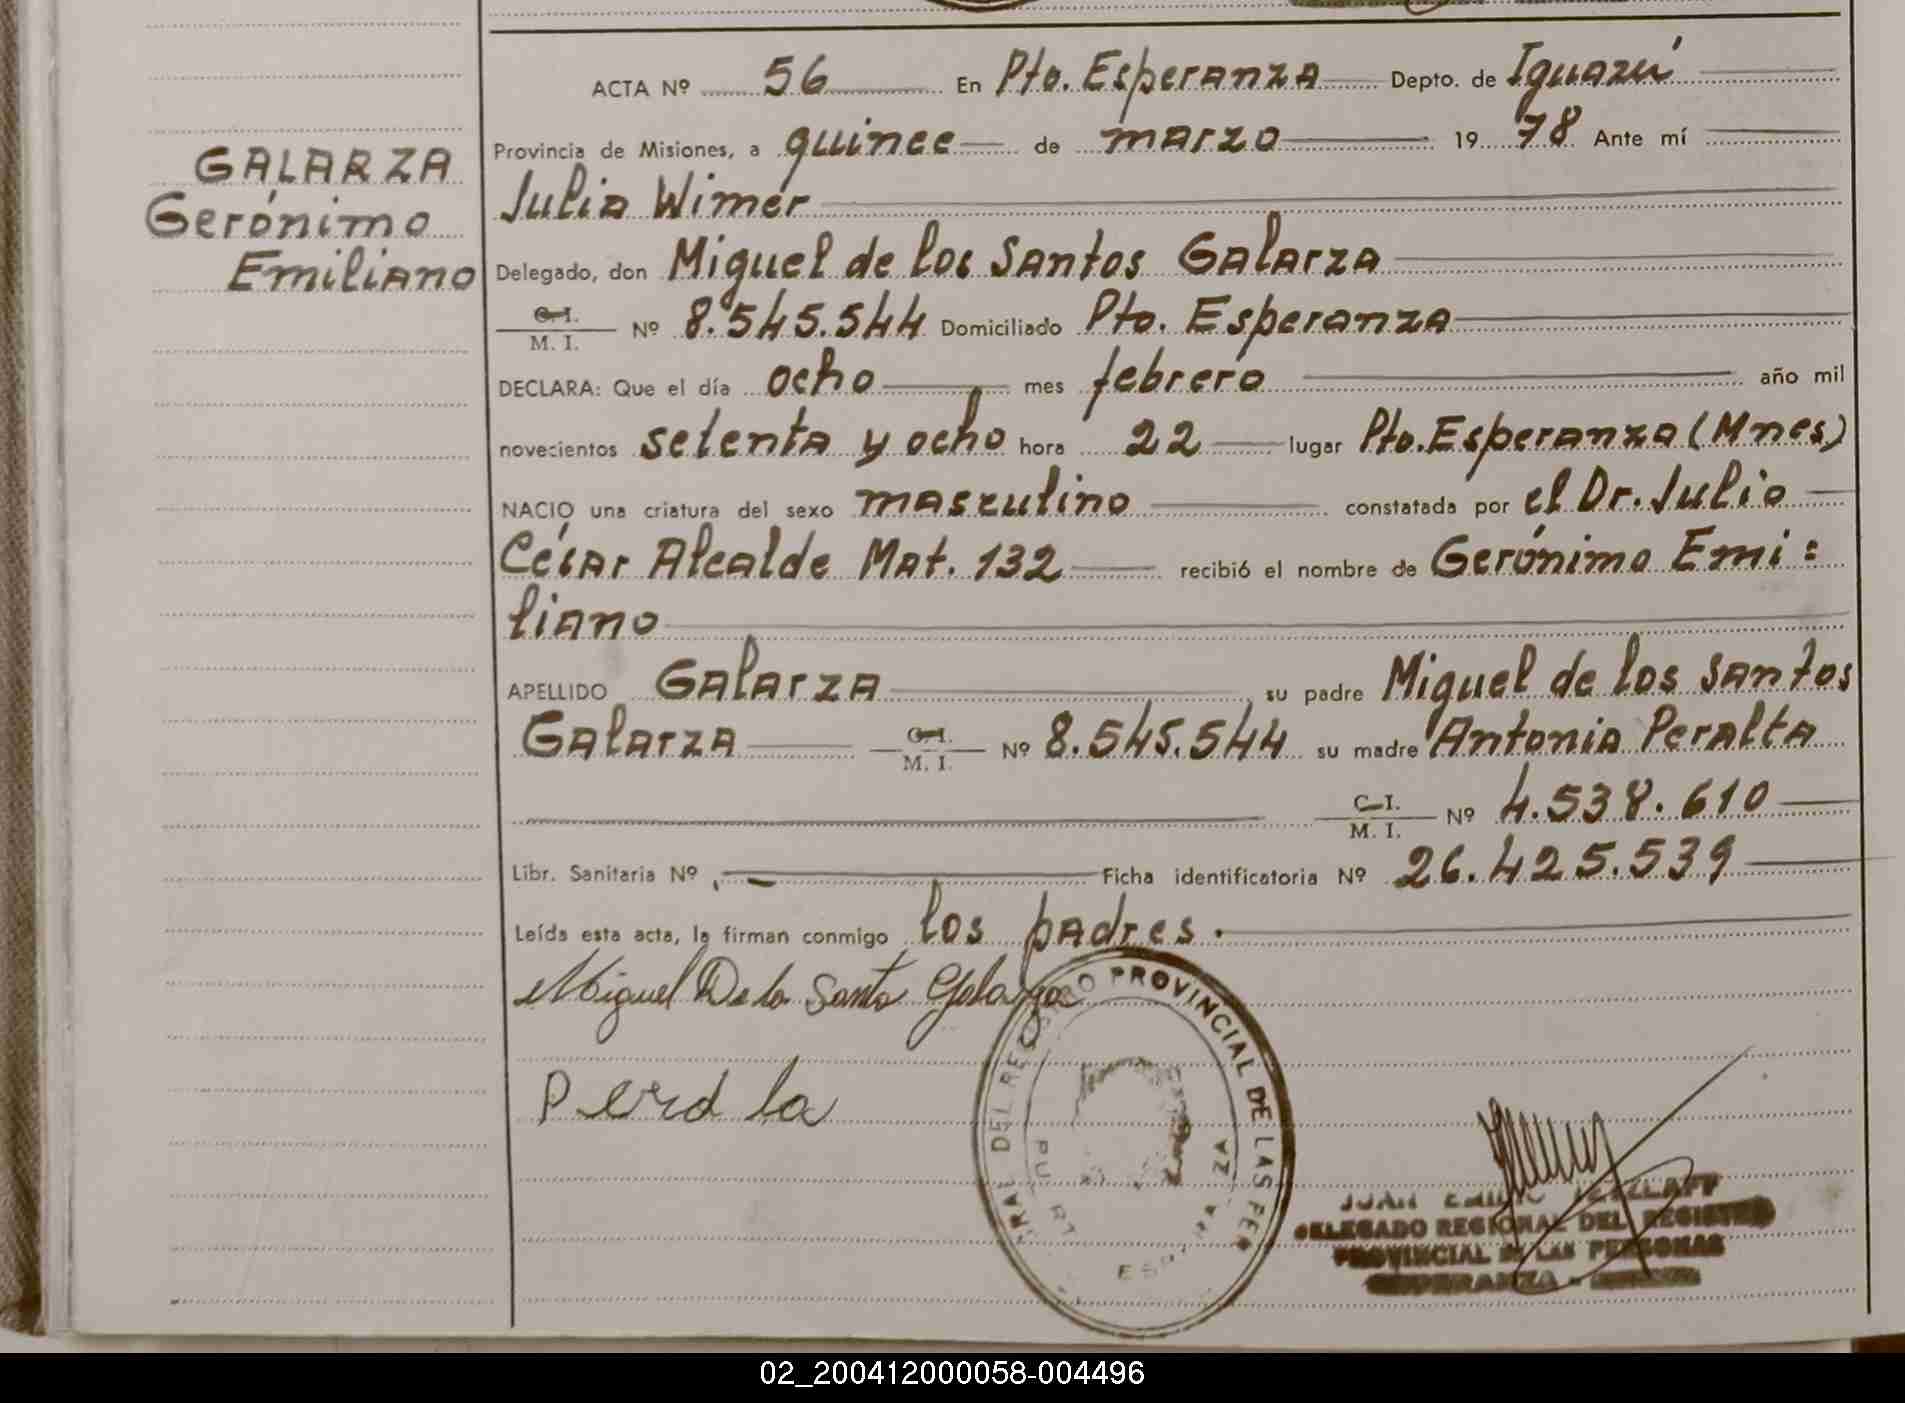 ACTA Nº 56 En Pto. Esperanza Depto. de Iguazú
Provincia de Misiones, a quince de marzo 19 78 Ante mí
GALARZA
Gerónimo
Emiliano
Julia Wimer
Delegado, don Miguel de los Santos Galarza
C. I.
M. I. Nº 8.545.544 Domiciliado Pto. Esperanza
DECLARA: Que el día ocho mes febrero año mil
novecientos setenta y ocho hora 22 lugar Pto. Esperanza (Mnes)
NACIO una criatura del sexo masculino constatada por el Dr. Julio
César Alcalde Mat. 132 recibió el nombre de Gerónimo Emi=
liano
APELLIDO Galarza su padre Miguel de los Santos
Galarza C. I.
M. I. Nº 8.545.544 su madre Antonia Peralta
C. I.
M. I. Nº 4.538.610
Libr. Sanitaria Nº Ficha identificatoria Nº 26.425.539
Leída esta acta, la firman conmigo los padres.
Miguel De la Santo Galarza
DEL REGISTRO PROVINCIAL DE LAS PE
Perd la
JUAN
DELEGADO REGIONAL DEL REGISTRO
PROVINCIAL DE LAS PERSONAS
ESPERANZA -
02_200412000058-004496